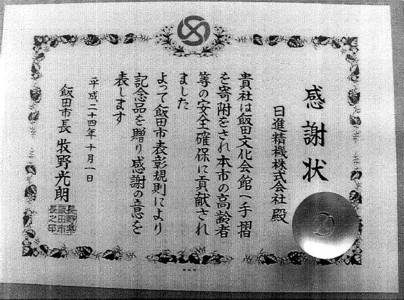 感謝状
日進精機株式会社殿
貴社は飯田文化会館へ手摺
を寄附をされ本市の高齢者
等の安全確保に貢献され
ました
よって飯田市表彰規則により
記念品を贈り感謝の意を
表します
平成二十四年十月一日
飯田市長 牧野光朗